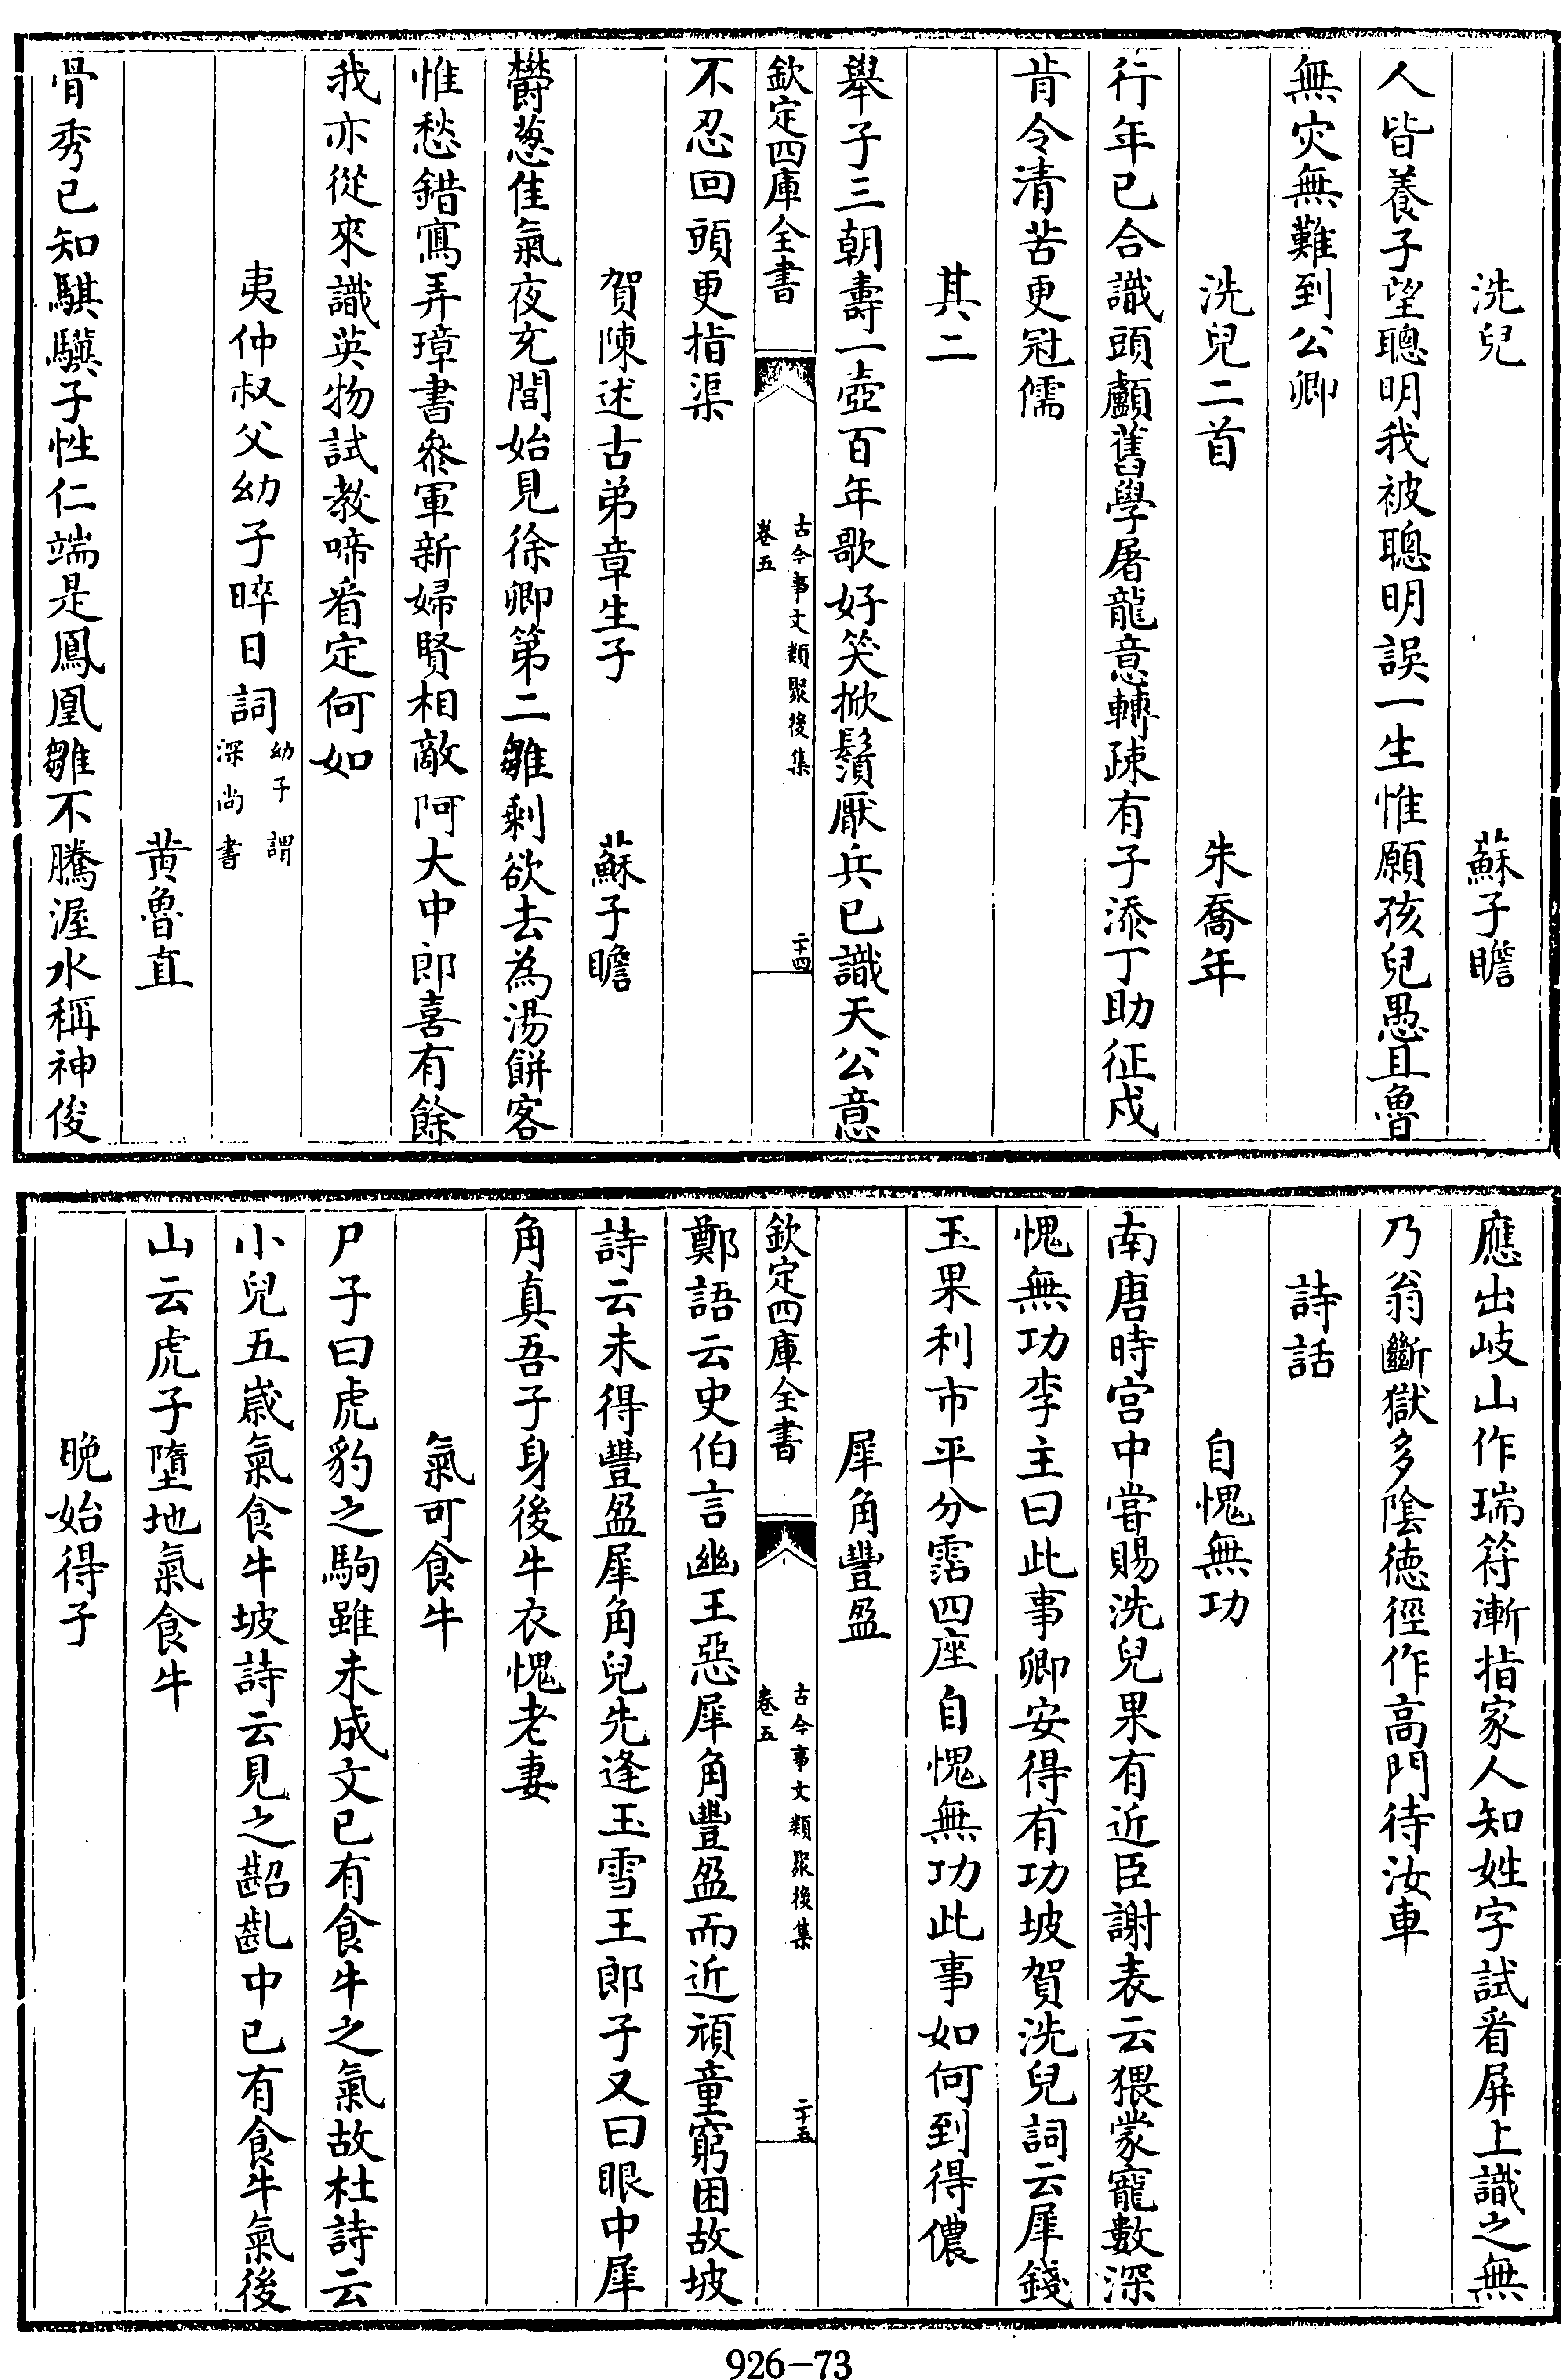 洗兒　蘇子瞻
人皆養子望聰明我被聰明誤一生惟願孩兒愚且魯
無灾無難到公卿
洗兒二首　朱喬年
行年已合識頭顱舊學屠龍意轉疎有子添丁助征戍
肯令清苦更冠儒
其二
舉子三朝壽一壺百年歌好笑掀鬚厭兵已識天公意
欽定四庫全書　古今事文類聚後集　卷五　二十四
不忍回頭更指渠
賀陳述古弟章生子　蘇子瞻
鬱葱佳氣夜充閭始見徐卿第二雛剩欲去為湯餅客
惟愁錯寫弄璋書叅軍新婦賢相敵阿大中郎喜有餘
我亦從來識英物試教啼看定何如
夷仲叔父幼子晬日詞幼子謂深尚書
黄魯直
骨秀已知騏驥子性仁端是鳳凰雛不騰渥水稱神俊
應出岐山作瑞符漸指家人知姓字試看屏上識之無
乃翁斷獄多陰德徑作高門待汝車
詩話
自愧無功
南唐時宫中嘗賜洗兒果有近臣謝表云猥蒙寵數深
愧無功李主曰此事卿安得有功坡賀洗兒詞云犀錢
玉果利市平分霑四座自愧無功此事如何到得儂
犀角豐盈
欽定四庫全書　古今事文類聚後集　卷五　二十五
鄭語云史伯言幽王惡犀角豐盈而近頑童窮困故坡
詩云未得豐盈犀角兒先逢玉雪王郎子又曰眼中犀
角真吾子身後牛衣愧老妻
氣可食牛
尸子曰虎豹之駒雖未成文已有食牛之氣故杜詩云
小兒五嵗氣食牛坡詩云見之齠齓中已有食牛氣後
山云虎子墮地氣食牛
晚始得子
926-73